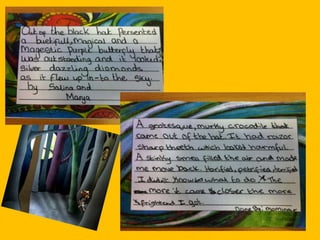 Out of the black hat Persented
a buetifull, magical and a
magestic Purple butterfly that
was outstanding and it
silver dazzling diamonds
as it flew up in-to the sky.
by Salina and
Marya
A grotesque, murky crocodile that
came out of the hat. It had razor
sharp threeth which looked harmful.
A stinky smell filled the air and made
me move back. Horified, petrified, terrified
I didn't know what to do. The
more it came closer the more
frightened I got.